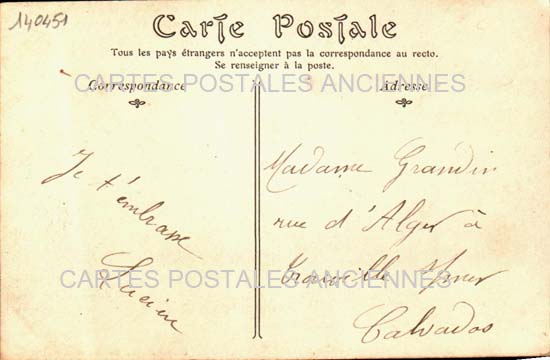 140451
Carte Postale
Tous les pays étrangers n'acceptent pas la correspondance au recto.
Se renseigner à la poste.
CARTES POSTALES ANCIENNES
Correspondance
Adresse
Je t'embrasse
Lucien
Madame Grandin
rue d'Alger à
Trouville s/mer
Calvados
CARTES POSTALES ANCIENNES